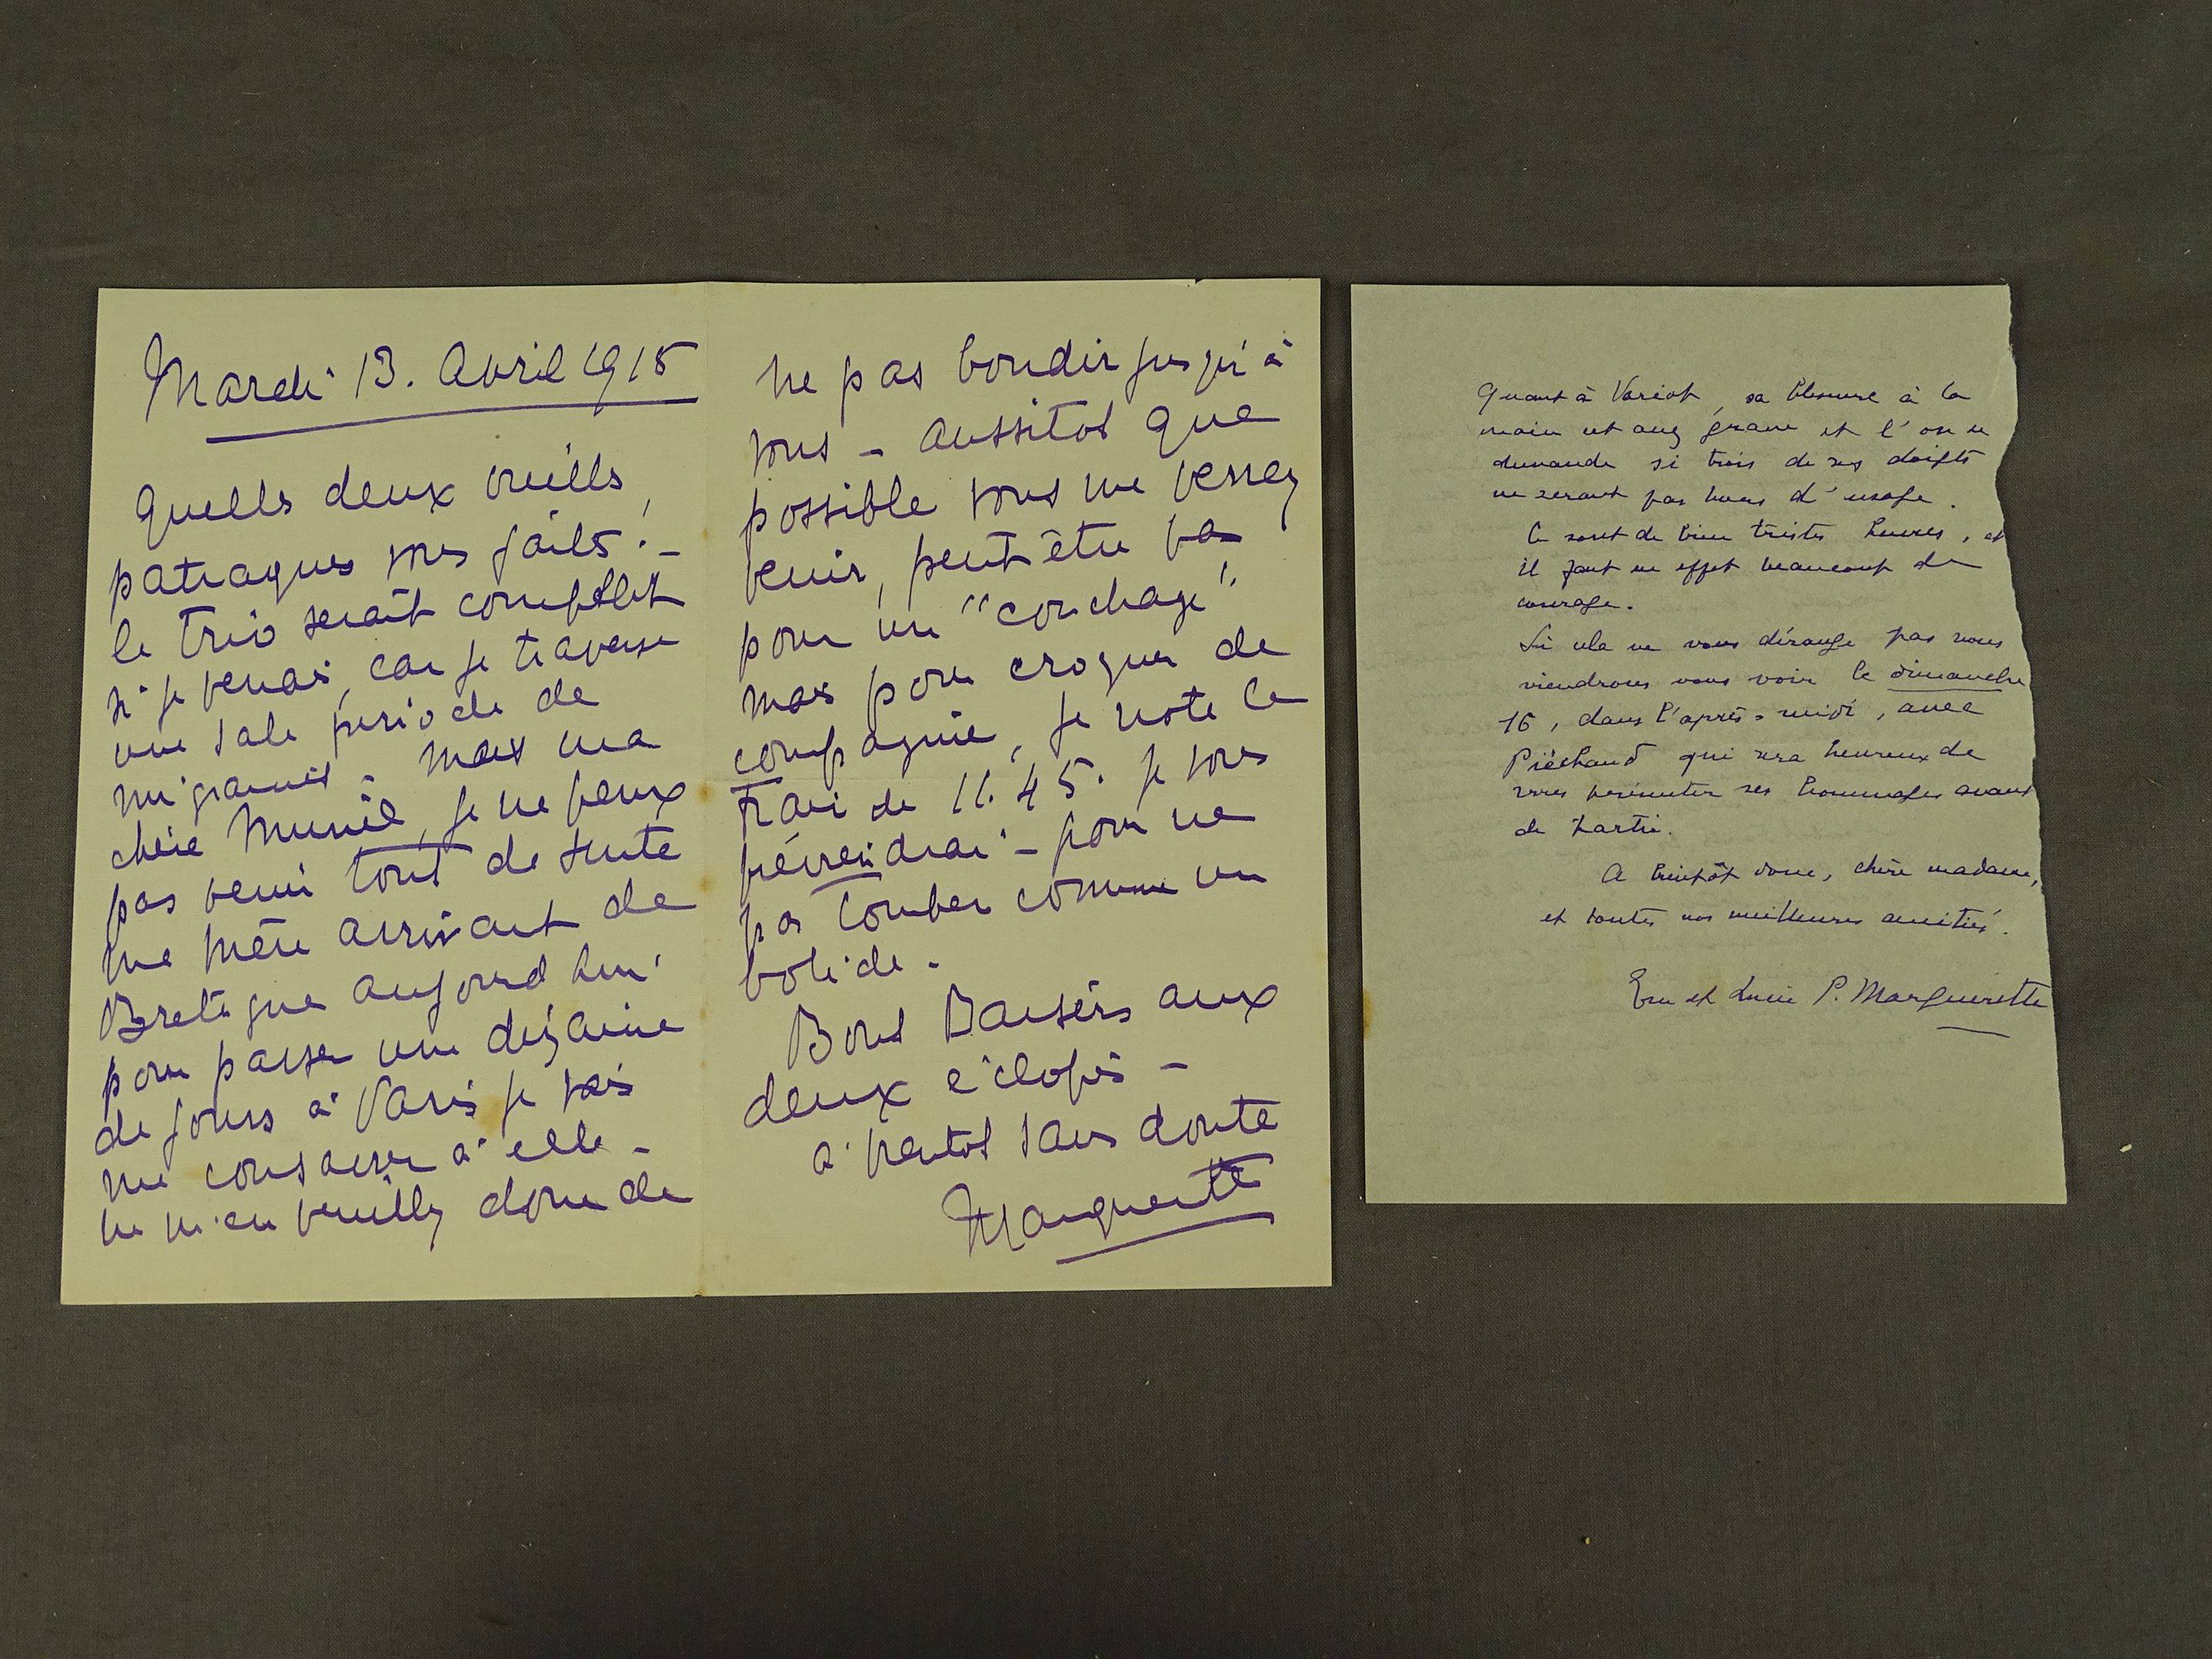 Mardi 13. Avril 1915
Quelles deux vieilles
patraques vous faites! –
le trio serait complet
si je venais, car je traverse
une sale période de
migraines – Mais ma
chère Mumie, je ne peux
pas venir tout de suite
ma mère arrivant de
Bretagne aujourd'hui
pour passer une dizaine
de jours à Paris je vais
me consacrer à elle –
ne m'en veuillez donc de
ne pas bondir jusqu'à
vous – Aussitot que
possible vous me verrez
venir, peut être pas
pour un "couchage"
mais pour croquer de
compagnie, je note le
train de 11.45. je vous
préviendrai – pour ne
pas tomber comme un
bolide –
Bons Baisers aux
deux éclopés –
a bientot sans doute
Marguerite
Quant à Variot, sa blessure à la
main est assez grave et l'on se
demande si trois de ses doigts
ne seront pas hors d'usage.
Ce sont de bien tristes heures, et
il faut en effet beaucoup de
courage.
Si cela ne vous dérange pas nous
viendrons vous voir le dimanche
16, dans l'après-midi, avec
Piéchaud qui sera heureux de
vous présenter ses hommages avant
de partir.
A bientôt donc, chère madame,
et toutes nos meilleures amitiés.
Eve et Lucie P. Margueritte